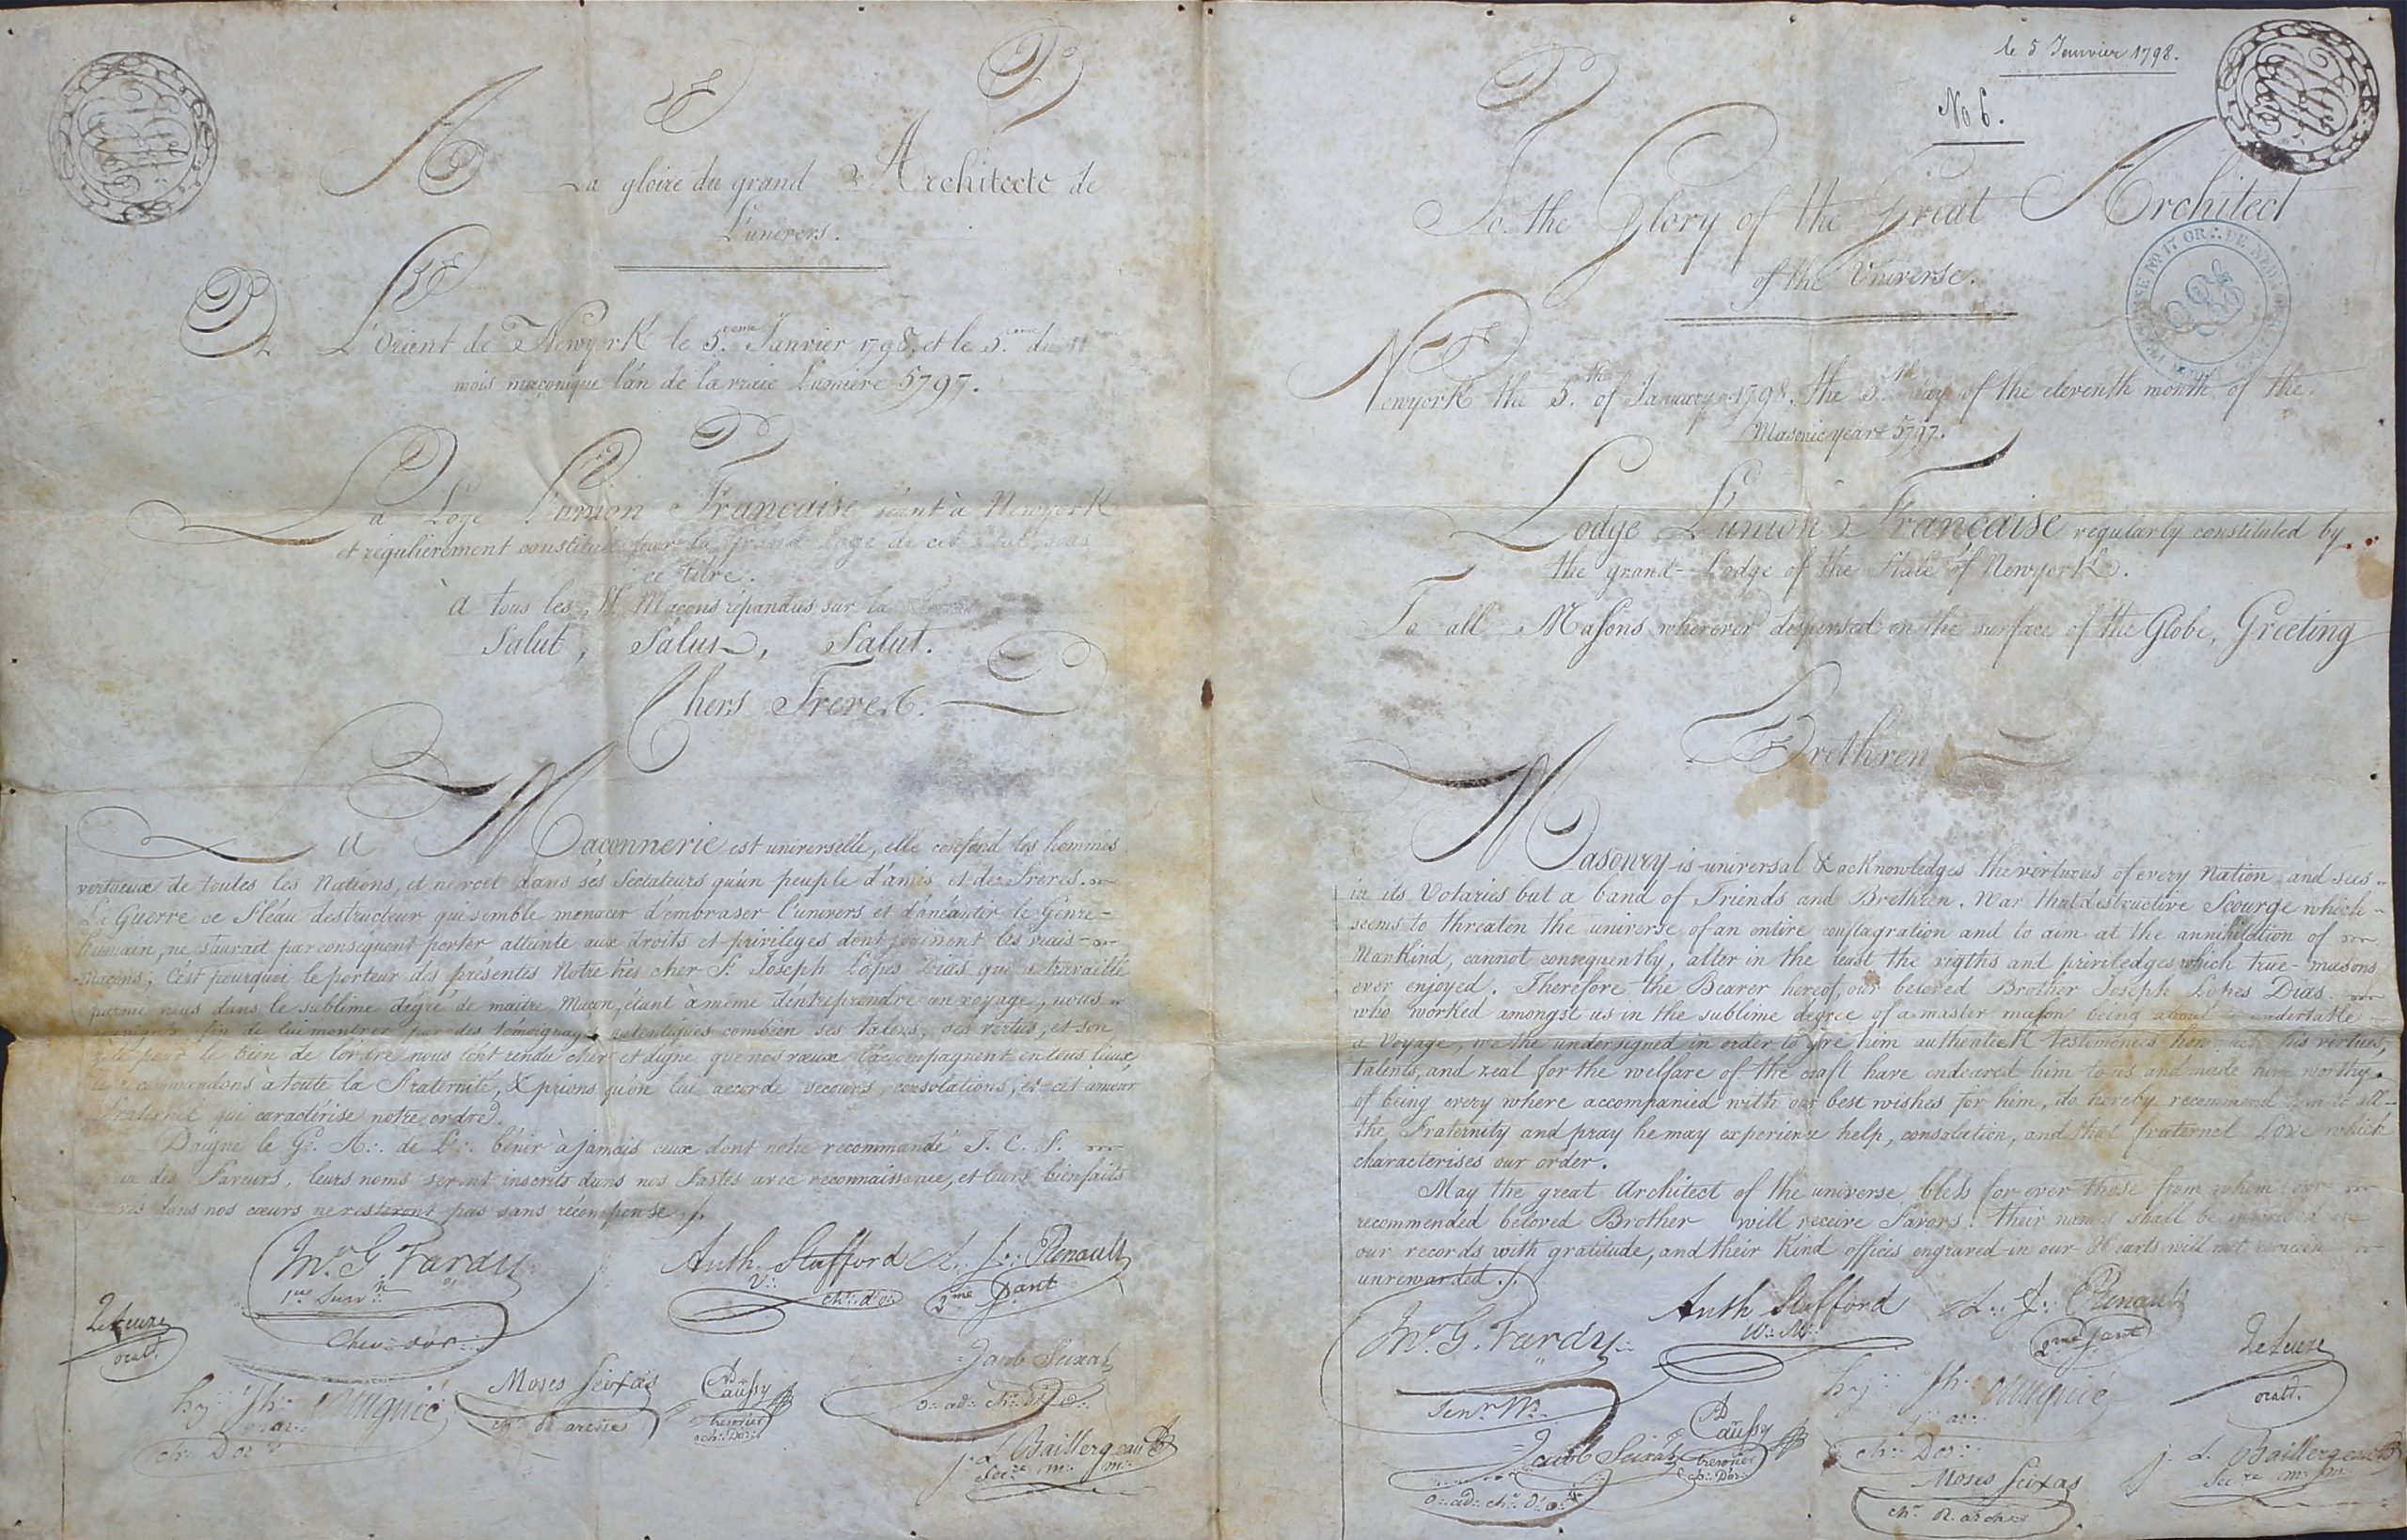 A La gloire du grand Architecte de
L'univers.
A L'Orient de Newyork le 5.eme Janvier 1798. et le 5.eme du 11eme
mois maçonique l'an de la vraie Lumière 5797.
La Loge L'union Francaise séant à Newyork
et régulièrement constituée par la grand Loge de cet Etat, sous
ce titre.
à tous les ff. Maçons répandus sur la
Salut, Salut, Salut.
Chers Freres.
La Maçonnerie est universelle, elle confond les hommes
vertueux de toutes les Nations, et ne voit dans ses Sectateurs qu'un peuple d'amis et de freres.
La Guerre ce fléau destructeur qui semble menacer d'embraser l'univers et d'anéantir le Genre-
humain, ne saurait par conséquent porter atteinte aux droits et privileges dont jouissent les vrais-
Maçons, C'est pourquoi le porteur des présentes Notre très cher f: Joseph Lopes Dias qui a travaillé
parmi nous dans le sublime dégré de maitre Maçon, étant à même d'entreprendre un voyage, nous
soussignés fin de lui montrer par des témoignages autentiques combien ses talens, ses vertus, et son
zèle pour le bien de l'ordre nous l'ont rendu cher et digne que nos vœux l'accompagnent en tous lieux,
le recommandons à toute la Fraternité, & prions qu'on lui accorde secours, consolations, et cet amour
fraternel qui caractérise notre ordre.
Daigne le G:. A:. de L':. bénir à jamais ceux dont notre recommandé T. C. F.
des Faveurs, leurs noms seront inscrits dans nos Fastes avec reconnaissance, et leurs bienfaits
gravés dans nos cœurs ne resteront pas sans récompense ./.
Mr. G. Tardy
1er Surv:nt
Chev: d'or:.
Anth. Stafford
V:.
ch:r: d'o:.
L:. J:. Renault
2me Sant
Lefevre
orat.
hy: Jh:
ch:. Dor:.
Moses Seixas
ch:r R. arche
Caussy
tresorier
ch:. Dor:.
Jacob Seixas
o:. ad:. ch:r d'o:.
j. L. Baillergeau
Secre m:. m:.
le 5 Janvier 1798.
No 6.
To the Glory of the Great Architect
of the Universe.
Newyork the 5.th of January 1798. the 5.th day of the eleventh month of the
Masonic year 5797.
Lodge L'union Française regularly constituted by
the grand-Lodge of the State of Newyork.
To all Masons wherever dispersed on the surface of the Globe, Greeting
Brethren
Masonry is universal & acknowledges the virtuous of every Nation and sees
in its Votaries but a band of Friends and Brethren. War that destructive Scourge which
seems to threaten the universe of an entire conflagration and to aim at the annihilation of
Mankind, cannot consequently, alter in the least the rigths and priviledges which true-masons
ever enjoyed. Therefore the Bearer hereof, our beloved Brother Joseph Lopes Dias
who worked amongst us in the sublime degree of a master mason being about undertake
a Voyage, we the undersigned in order to give him authentick testimonies how much his virtues,
talents, and zeal for the welfare of the craft have endeared him to us and made him worthy
of being every where accompanied with our best wishes for him, do hereby recommend him to all
the Fraternity and pray he may experience help, consolation, and that fraternel Love which
characterises our order.
May the great Architect of the universe bless for ever those from whom our
recommended beloved Brother will receive Favors! their names shall be inscribed in
our records with gratitude, and their Kind offices engraved in our Hearts will not remain
unrewarded ./.
Mr. G. Tardy
Senr Wn
Anth Stafford
W:. M:.
L:. J:. Renault
2me Sant
Lefevre
orat.
Jacob Seixas
o:. ad:. ch:r d'o:.
Caussy
tresorier
ch:. Dor:.
hy: Jh:
ch:. Dor:.
Moses Seixas
ch:r R. arche
j. L. Baillergeau
Secre m:. m:.